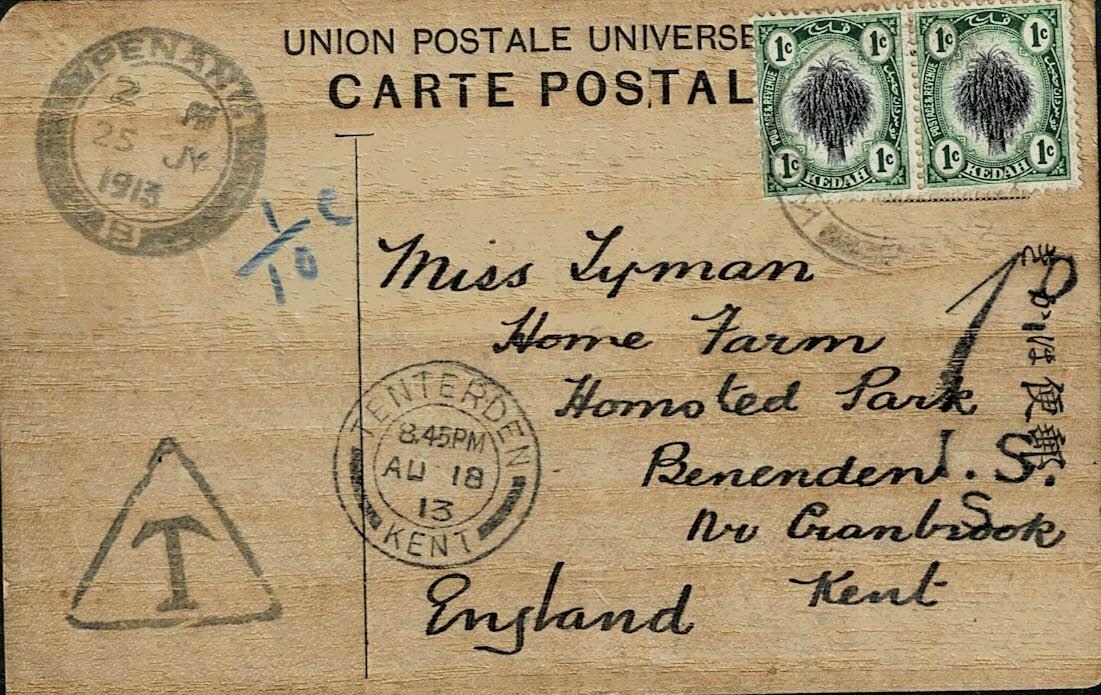 UNION POSTALE UNIVERSE
CARTE POSTAL
PENANG
2
25 JY
1913
B
1c 1c
POSTAGE & REVENUE
1c 1c
KEDAH
1c 1c
POSTAGE & REVENUE
1c 1c
KEDAH
1/10 c
Miss Lyman
Home Farm
Homsted Park
Benenden
Nr Cranbrook
Kent
England
TENTERDEN
8.45PM
AU 18
13
KENT
T
1D
I.S.
S
郵便はかき